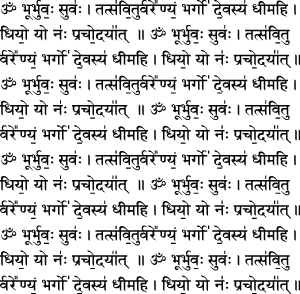 ॐ भूर्भुवः॒ सुवः॑ । तत्स॑वि॒तुर्वरे᳚ण्यं॒ भर्गो॑ दे॒वस्य॑ धीमहि ।
धियो॒ यो नः॑ प्रचो॒दया᳚त् ॥ ॐ भूर्भुवः॒ सुवः॑ । तत्स॑वि॒तु
र्वरे᳚ण्यं॒ भर्गो॑ दे॒वस्य॑ धीमहि । धियो॒ यो नः॑ प्रचो॒दया᳚त् ॥
ॐ भूर्भुवः॒ सुवः॑ । तत्स॑वि॒तुर्वरे᳚ण्यं॒ भर्गो॑ दे॒वस्य॑ धीमहि ।
धियो॒ यो नः॑ प्रचो॒दया᳚त् ॥ ॐ भूर्भुवः॒ सुवः॑ । तत्स॑वि॒तु
र्वरे᳚ण्यं॒ भर्गो॑ दे॒वस्य॑ धीमहि । धियो॒ यो नः॑ प्रचो॒दया᳚त् ॥
ॐ भूर्भुवः॒ सुवः॑ । तत्स॑वि॒तुर्वरे᳚ण्यं॒ भर्गो॑ दे॒वस्य॑ धीमहि ।
धियो॒ यो नः॑ प्रचो॒दया᳚त् ॥ ॐ भूर्भुवः॒ सुवः॑ । तत्स॑वि॒तु
र्वरे᳚ण्यं॒ भर्गो॑ दे॒वस्य॑ धीमहि । धियो॒ यो नः॑ प्रचो॒दया᳚त् ॥
ॐ भूर्भुवः॒ सुवः॑ । तत्स॑वि॒तुर्वरे᳚ण्यं॒ भर्गो॑ दे॒वस्य॑ धीमहि ।
धियो॒ यो नः॑ प्रचो॒दया᳚त् ॥ ॐ भूर्भुवः॒ सुवः॑ । तत्स॑वि॒तु
र्वरे᳚ण्यं॒ भर्गो॑ दे॒वस्य॑ धीमहि । धियो॒ यो नः॑ प्रचो॒दया᳚त् ॥